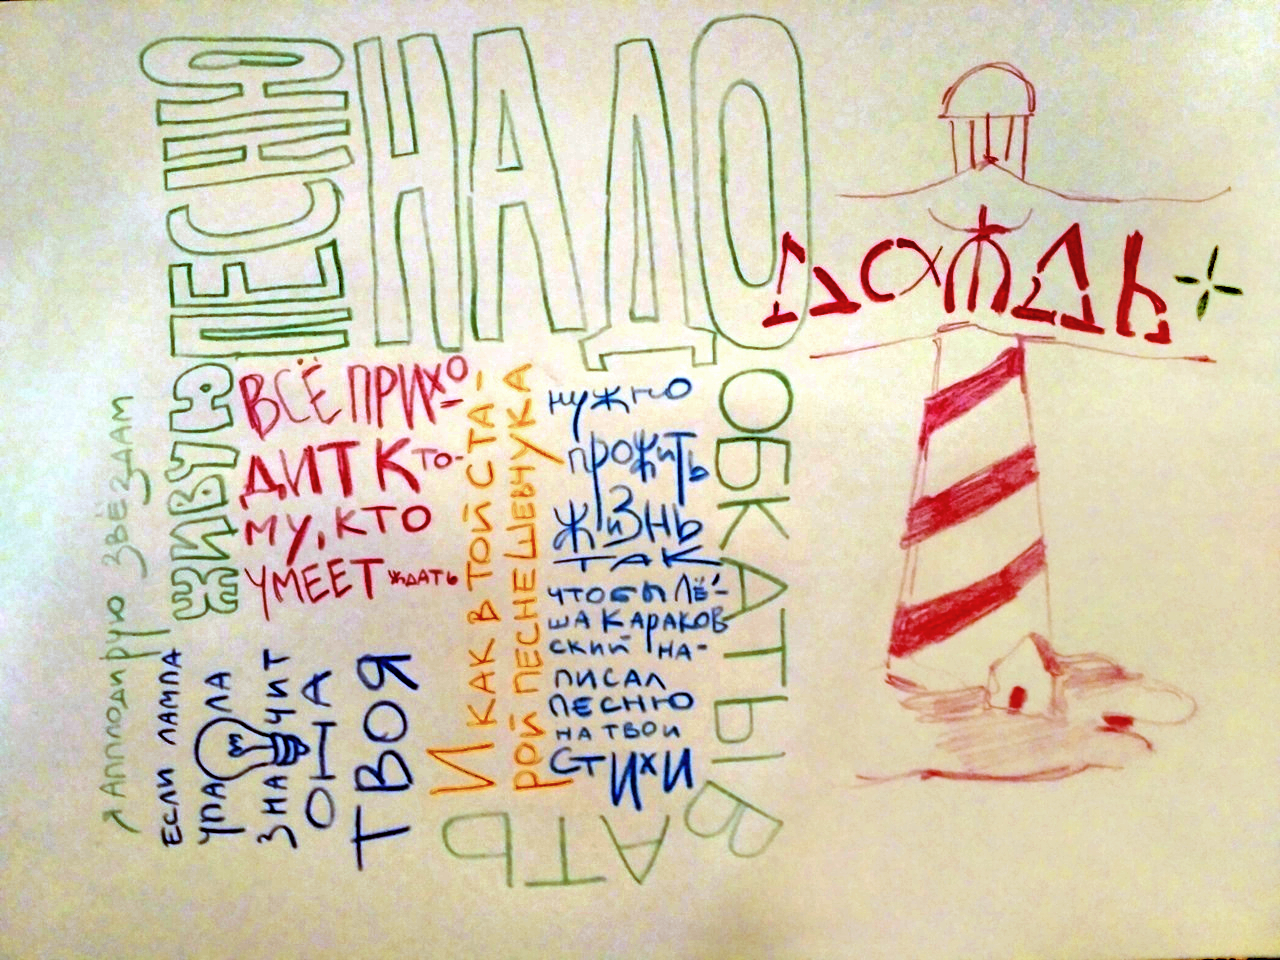 ЖИВУЮ ПЕСНЮ
НАДО
ОБКАТЫВАТЬ
ДОЖДЬ
ВСЁ ПРИХО-
ДИТ К ТО-
МУ, КТО
УМЕЕТ ЖДАТЬ
И КАК В ТОЙ СТА-
РОЙ ПЕСНЕ ШЕВЧУКА
НУЖНО
ПРОЖИТЬ
ЖИЗНЬ
ТАК
ЧТОБЫ ЛЁ-
ША КАРАКОВ
СКИЙ НА-
ПИСАЛ
ПЕСНЮ
НА ТВОИ
СТИХИ
Я АППЛОДИРУЮ ЗВЁЗДАМ
ЕСЛИ ЛАМПА
УПАЛА
ЗНАЧИТ
ОНА
ТВОЯ